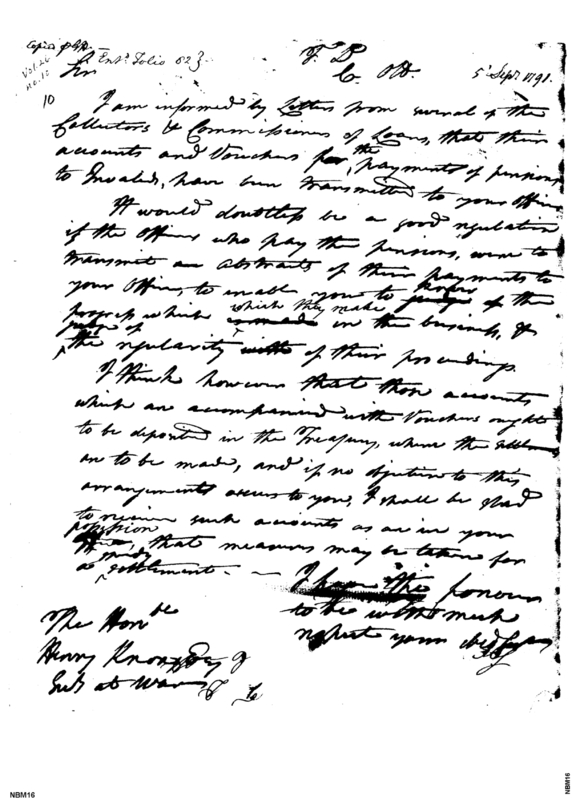 Copied
Vol. 26
No. 10
Ent.d Folio 82 }
T. D
C. Off. 5 Sept 1791.
Sir
10
I am informed by Letters from several of the
Collectors & Commissioners of Loans, that their
accounts and Vouchers for the payments of pensions
to Invalids, have been transmitted to your Office
It would doubtless be a good regulation
if the Officers who pay the pensions, were to
transmit an Abstracts of their payments to
your Office, to enable you to know of the
progress which which they make in the business, &
judge of
the regularity with of their proceedings.
I think however that those accounts
which are accompanied with Vouchers ought
to be deposited in the Treasury, where the
are to be made, and if no objection to this
arrangements occurs to you, I shall be glad
to receive such accounts as are in your
possession
that measures may be taken for
a settlement. —
I have the honour
to be with much
respect your obed
The Hon.ble
Henry Knox Esq
Sec.y at War
NBM16
NBM16